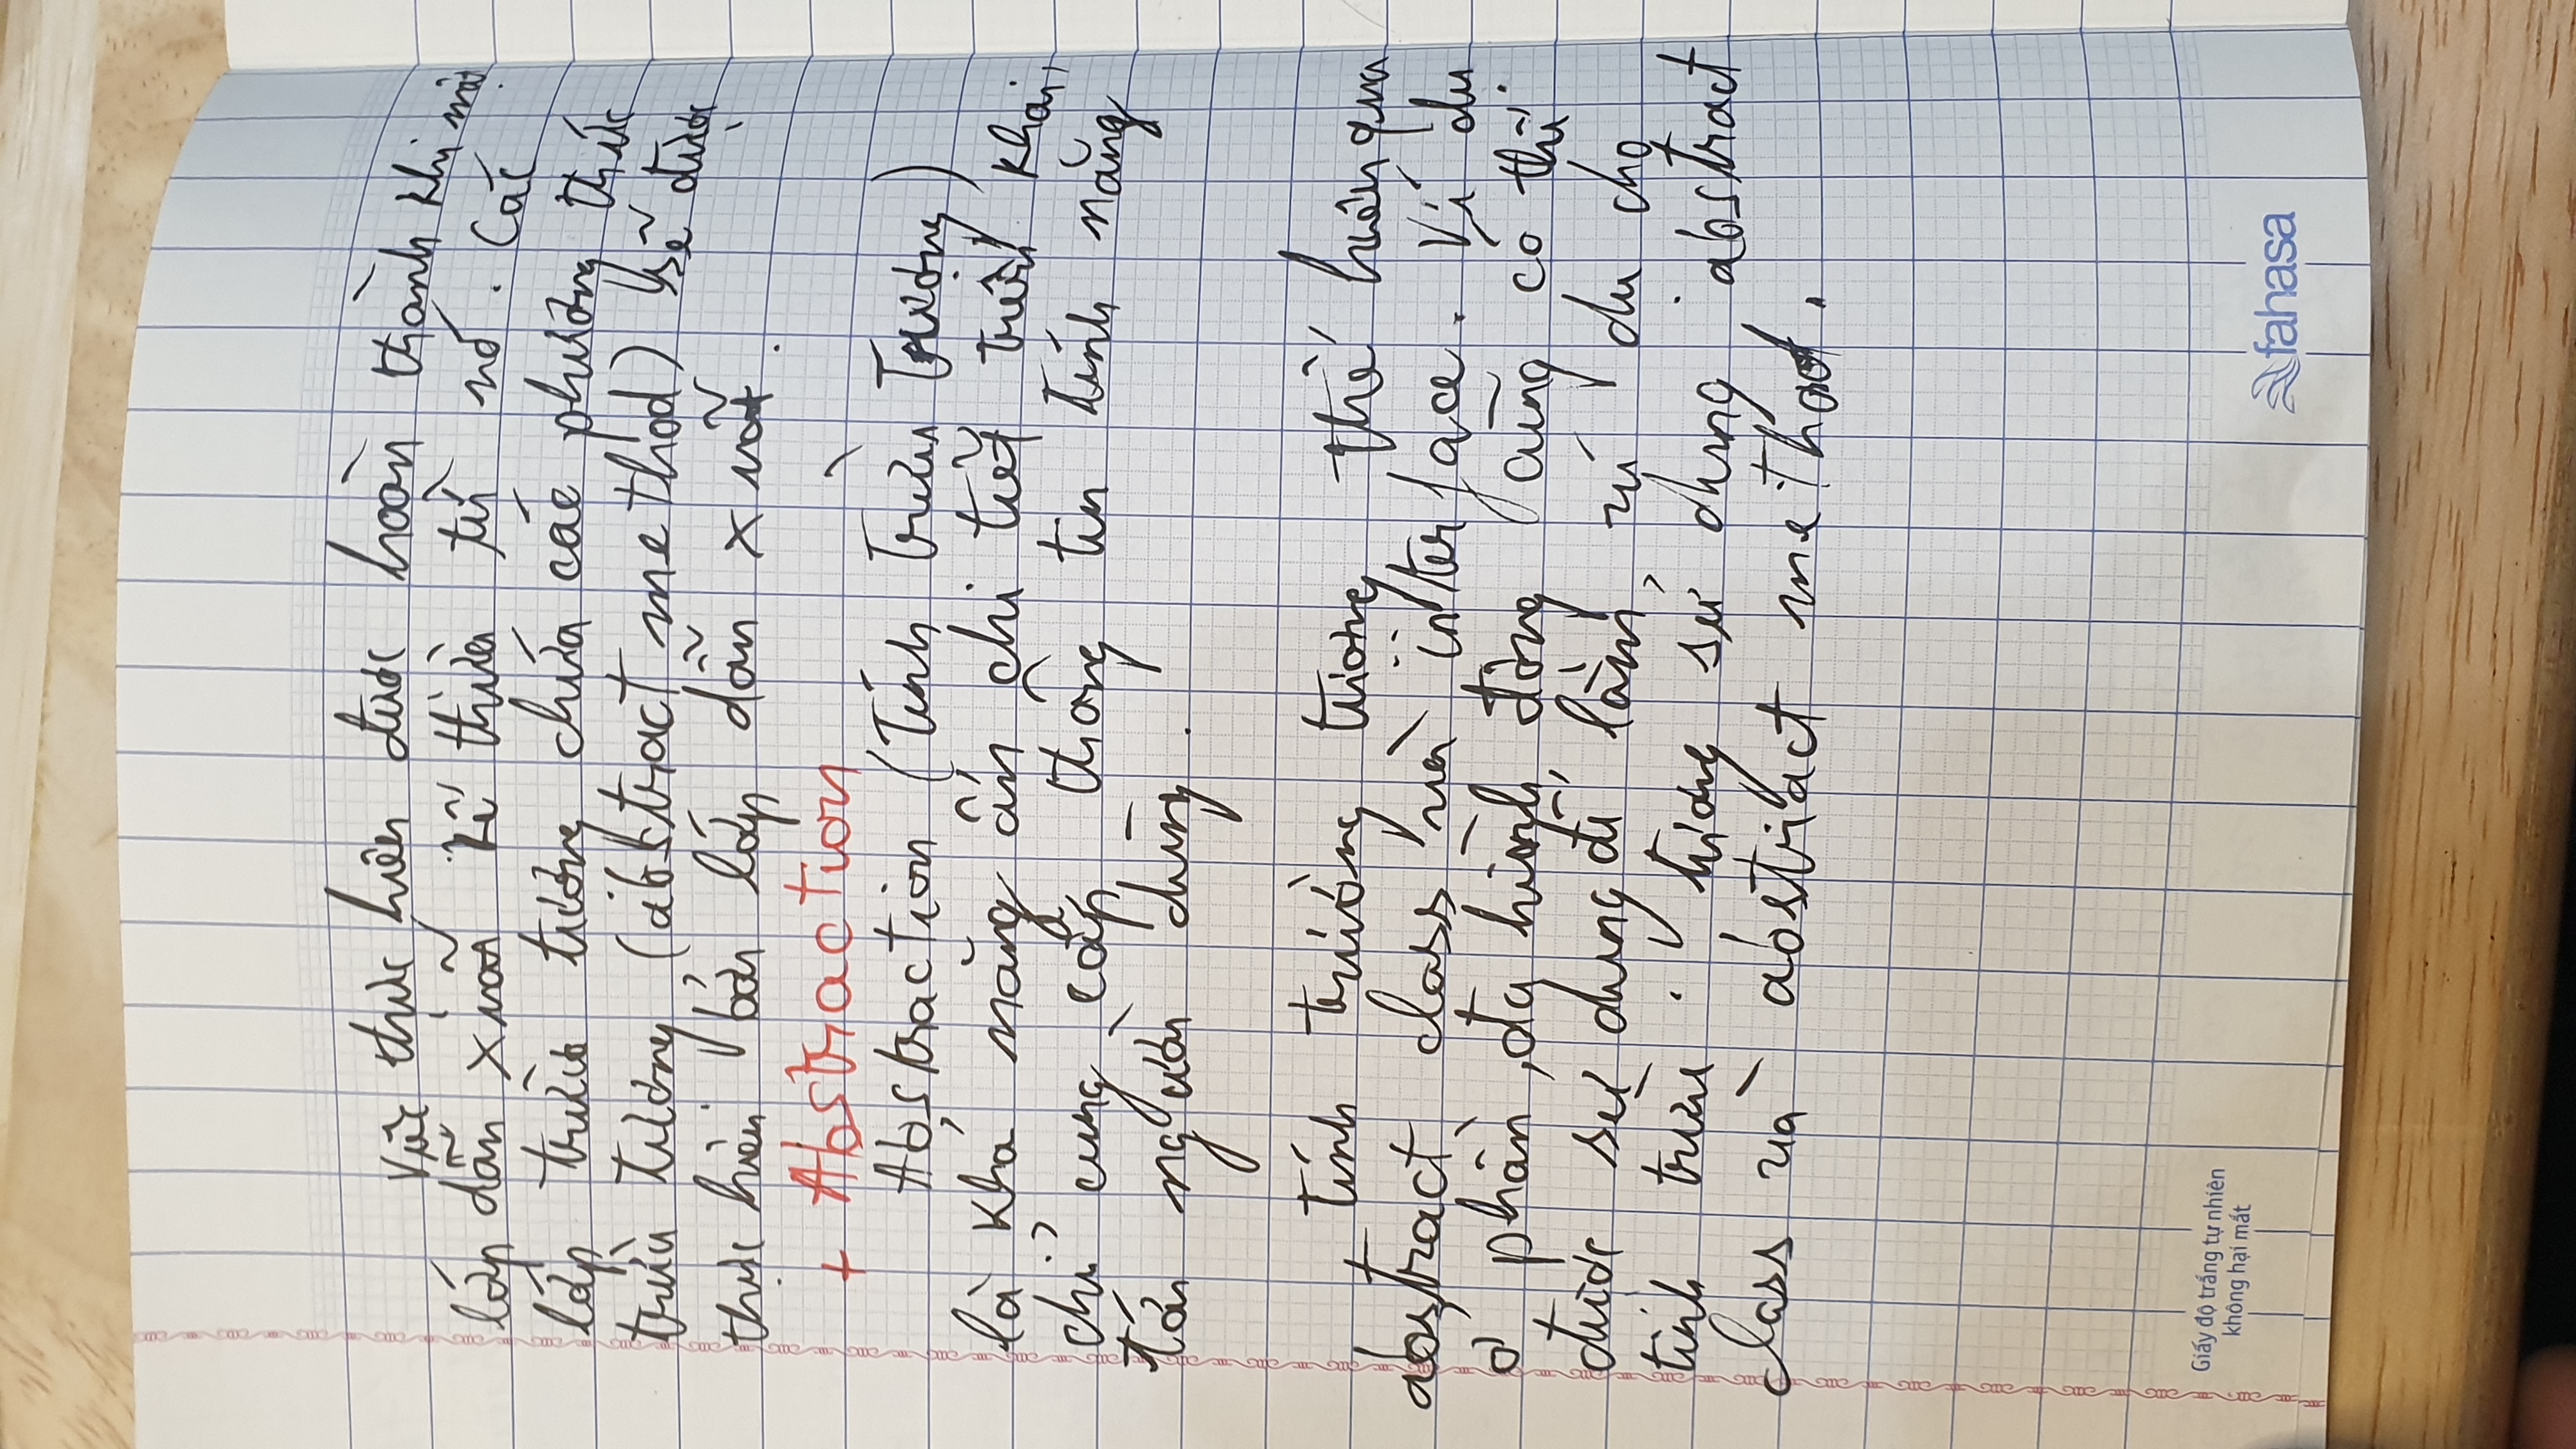 Việc thực hiện được hoàn thành khi một
lớp dẫn xuất kế thừa từ nó. Các
lớp trừu tượng chứa các phương thức
trừu tượng (abstract method) sẽ được
thực hiện bởi lớp dẫn xuất.
+ Abstraction
Abstraction (Tính Trừu Tượng)
là khả năng ẩn chi tiết triển khai,
chỉ cung cấp thông tin tính năng
tới người dùng.
tính trường tượng thể hiện qua
abstract class và interface. Ví dụ
ở phần đa hình động cũng có thể
được sử dụng để làm ví dụ cho
tính trừu tượng sử dụng abstract
class và abstract method.
Giấy độ trắng tự nhiên
không hại mắt
fahasa